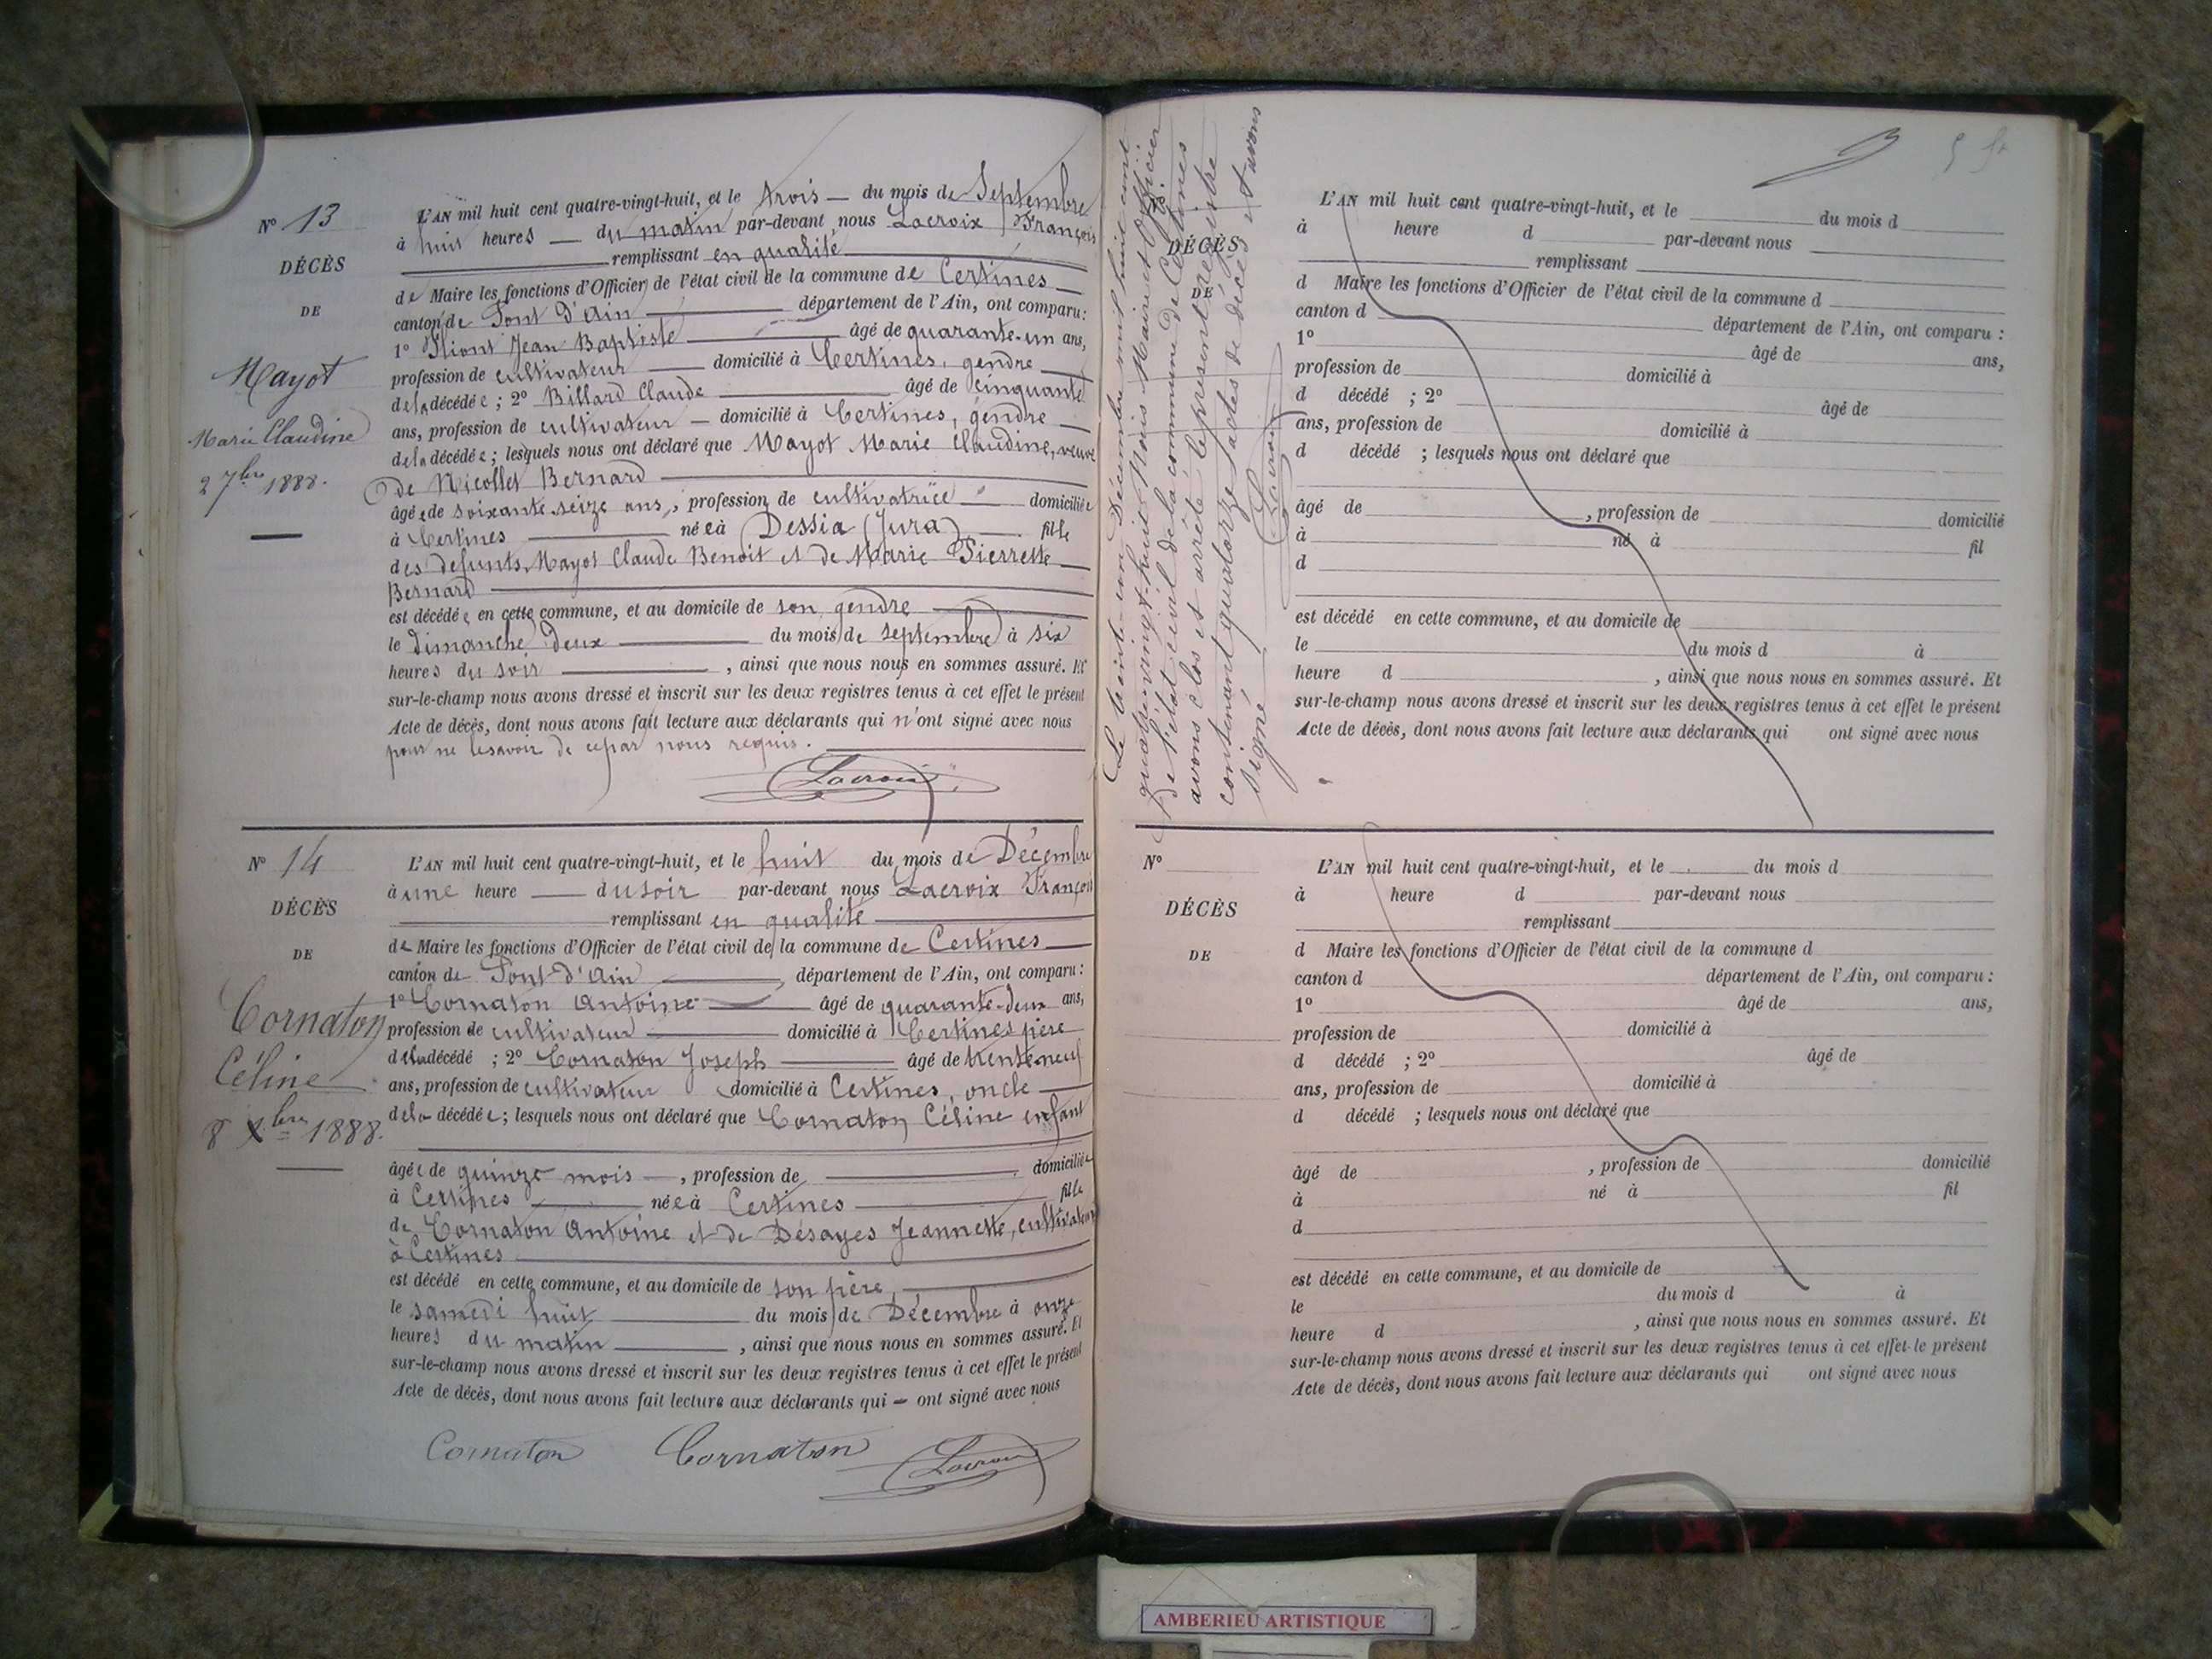 N° 13
DÉCÈS
DE
Mayot
Marie Claudine
2 7bre 1888.
L'AN mil huit cent quatre-vingt-huit, et le trois — du mois de Septembre
à huit heures — du matin par-devant nous Lacroix François
remplissant en qualité
de Maire les fonctions d'Officier de l'état civil de la commune de Certines
canton de Pont d'Ain département de l'Ain, ont comparu :
1° Jean Baptiste âgé de quarante-un ans,
profession de cultivateur domicilié à Certines, gendre
de la décédée ; 2° Billard Claude âgé de cinquante
ans, profession de cultivateur — domicilié à Certines, gendre
de la décédée ; lesquels nous ont déclaré que Mayot Marie Claudine, veuve
de Nicollet Bernard
âgée de soixante seize ans, profession de cultivatrice domiciliée
à Certines née à Dessia (Jura) fille
des defunts Mayot Claude Benoit et de Marie Pierrette
Bernard
est décédée en cette commune, et au domicile de son gendre
le dimanche deux du mois de septembre à six
heures du soir , ainsi que nous nous en sommes assuré. Et
sur-le-champ nous avons dressé et inscrit sur les deux registres tenus à cet effet le présent
Acte de décès, dont nous avons fait lecture aux déclarants qui n'ont signé avec nous
pour ne le savoir de ce par nous requis.
Lacroix
N° 14
DÉCÈS
DE
Cornaton
Céline
8 Xbre 1888.
L'AN mil huit cent quatre-vingt-huit, et le huit du mois de Décembre
à une heure — du soir par-devant nous Lacroix François
remplissant en qualité
de Maire les fonctions d'Officier de l'état civil de la commune de Certines
canton de Pont-d'Ain département de l'Ain, ont comparu :
1° Cornaton Antoine âgé de quarante-deux ans,
profession de cultivateur domicilié à Certines père
de la décédé ; 2° Cornaton Joseph âgé de trente-neuf
ans, profession de cultivateur domicilié à Certines, oncle
de la décédée ; lesquels nous ont déclaré que Cornaton Céline enfant
âgée de quinze mois —, profession de domiciliée
à Certines née à Certines fille
de Cornaton Antoine et de Désayes Jeannette, cultivateurs
à Certines
est décédé en cette commune, et au domicile de son père
le samedi huit du mois de Décembre à onze
heures du matin , ainsi que nous nous en sommes assuré. Et
sur-le-champ nous avons dressé et inscrit sur les deux registres tenus à cet effet le présent
Acte de décès, dont nous avons fait lecture aux déclarants qui — ont signé avec nous
Cornaton Cornaton Lacroix
Le trente-un Décembre mil huit cent
quatre-vingt-huit Nous Maire et Officier
de l'état civil de la commune de Certines
avons clos et arrêté le présent registre
contenant quatorze actes de décès et avons
signé
Lacroix
DÉCÈS
DE
L'AN mil huit cent quatre-vingt-huit, et le du mois d
à heure d par-devant nous
remplissant
d Maire les fonctions d'Officier de l'état civil de la commune d
canton d département de l'Ain, ont comparu :
1° âgé de ans,
profession de domicilié à
d décédé ; 2° âgé de
ans, profession de domicilié à
d décédé ; lesquels nous ont déclaré que
âgé de , profession de domicilié
à né à fil
d
est décédé en cette commune, et au domicile de
le du mois d à
heure d , ainsi que nous nous en sommes assuré. Et
sur-le-champ nous avons dressé et inscrit sur les deux registres tenus à cet effet le présent
Acte de décès, dont nous avons fait lecture aux déclarants qui ont signé avec nous
N°
DÉCÈS
DE
L'AN mil huit cent quatre-vingt-huit, et le du mois d
à heure d par-devant nous
remplissant
d Maire les fonctions d'Officier de l'état civil de la commune d
canton d département de l'Ain, ont comparu :
1° âgé de ans,
profession de domicilié à
d décédé ; 2° âgé de
ans, profession de domicilié à
d décédé ; lesquels nous ont déclaré que
âgé de , profession de domicilié
à né à fil
d
est décédé en cette commune, et au domicile de
le du mois d à
heure d , ainsi que nous nous en sommes assuré. Et
sur-le-champ nous avons dressé et inscrit sur les deux registres tenus à cet effet le présent
Acte de décès, dont nous avons fait lecture aux déclarants qui ont signé avec nous
AMBERIEU ARTISTIQUE